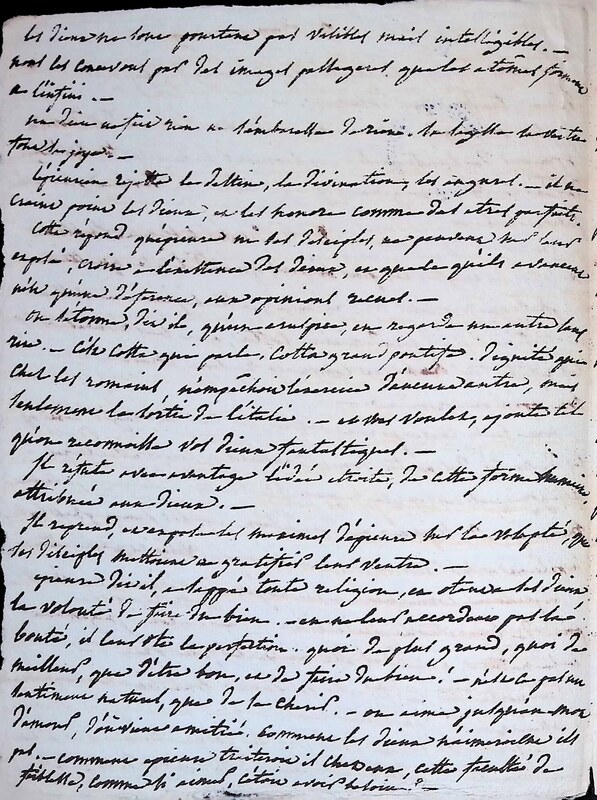 les dieux ne sont pourtant pas visibles mais intelligibles. —
nous les concevons par des images passageres que les atômes forment
a l'infini. —
un dieu ne fait rien ne s'embarrasse de rien. sa sagesse sa vertu
font sa joye. —
Epicurien rejette le destin, la divination, les augures. — il ne
craint point les dieux, et les honore comme des etres parfaits.
Cotta repond qu'epicure ni ses disciples, ne peuvent sur leur
exposé, croire a l'existence des dieux, et que ce qu'ils avancent
n'est qu'une déférence, aux opinions recues. —
On s'étonne, dit il, qu'un aruspice, en regarde un autre sans
rire. — C'est Cotta qui parle, Cotta grand pontife. dignité qui
chez les romains, n'empêchoit l'exercice d'aucune autre, mais
seulement la sortie de l'italie. — et vous voulez, ajoute t'il
qu'on reconnoisse vos dieux fantastiques. —
Il réfute avec avantage l'idée etroite, de cette forme humaine
attribuée aux dieux. —
Il reprend, et expose les maximes d'epicure sur la volupté, que
les disciples mettoient a gratifier leur ventre. —
epicure dit il, a sappé toute religion, en otant a ses dieux
la volonté de faire du bien. — en ne leur accordant pas la
bonté, il leur ôte la perfection. quoi de plus grand, quoi de
meilleur, que d'être bon, et de faire du bien! — n'est ce pas un
sentiment naturel, que de se cherir. — on aime jusqu'au mot
d'amour, d'où vient amitié. Comment les dieux n'aimeroient ils
pas. — comment epicure traiteroit il chez eux, cette faculté de
foiblesse, comme si aimer, c'étoit avoir besoin? —